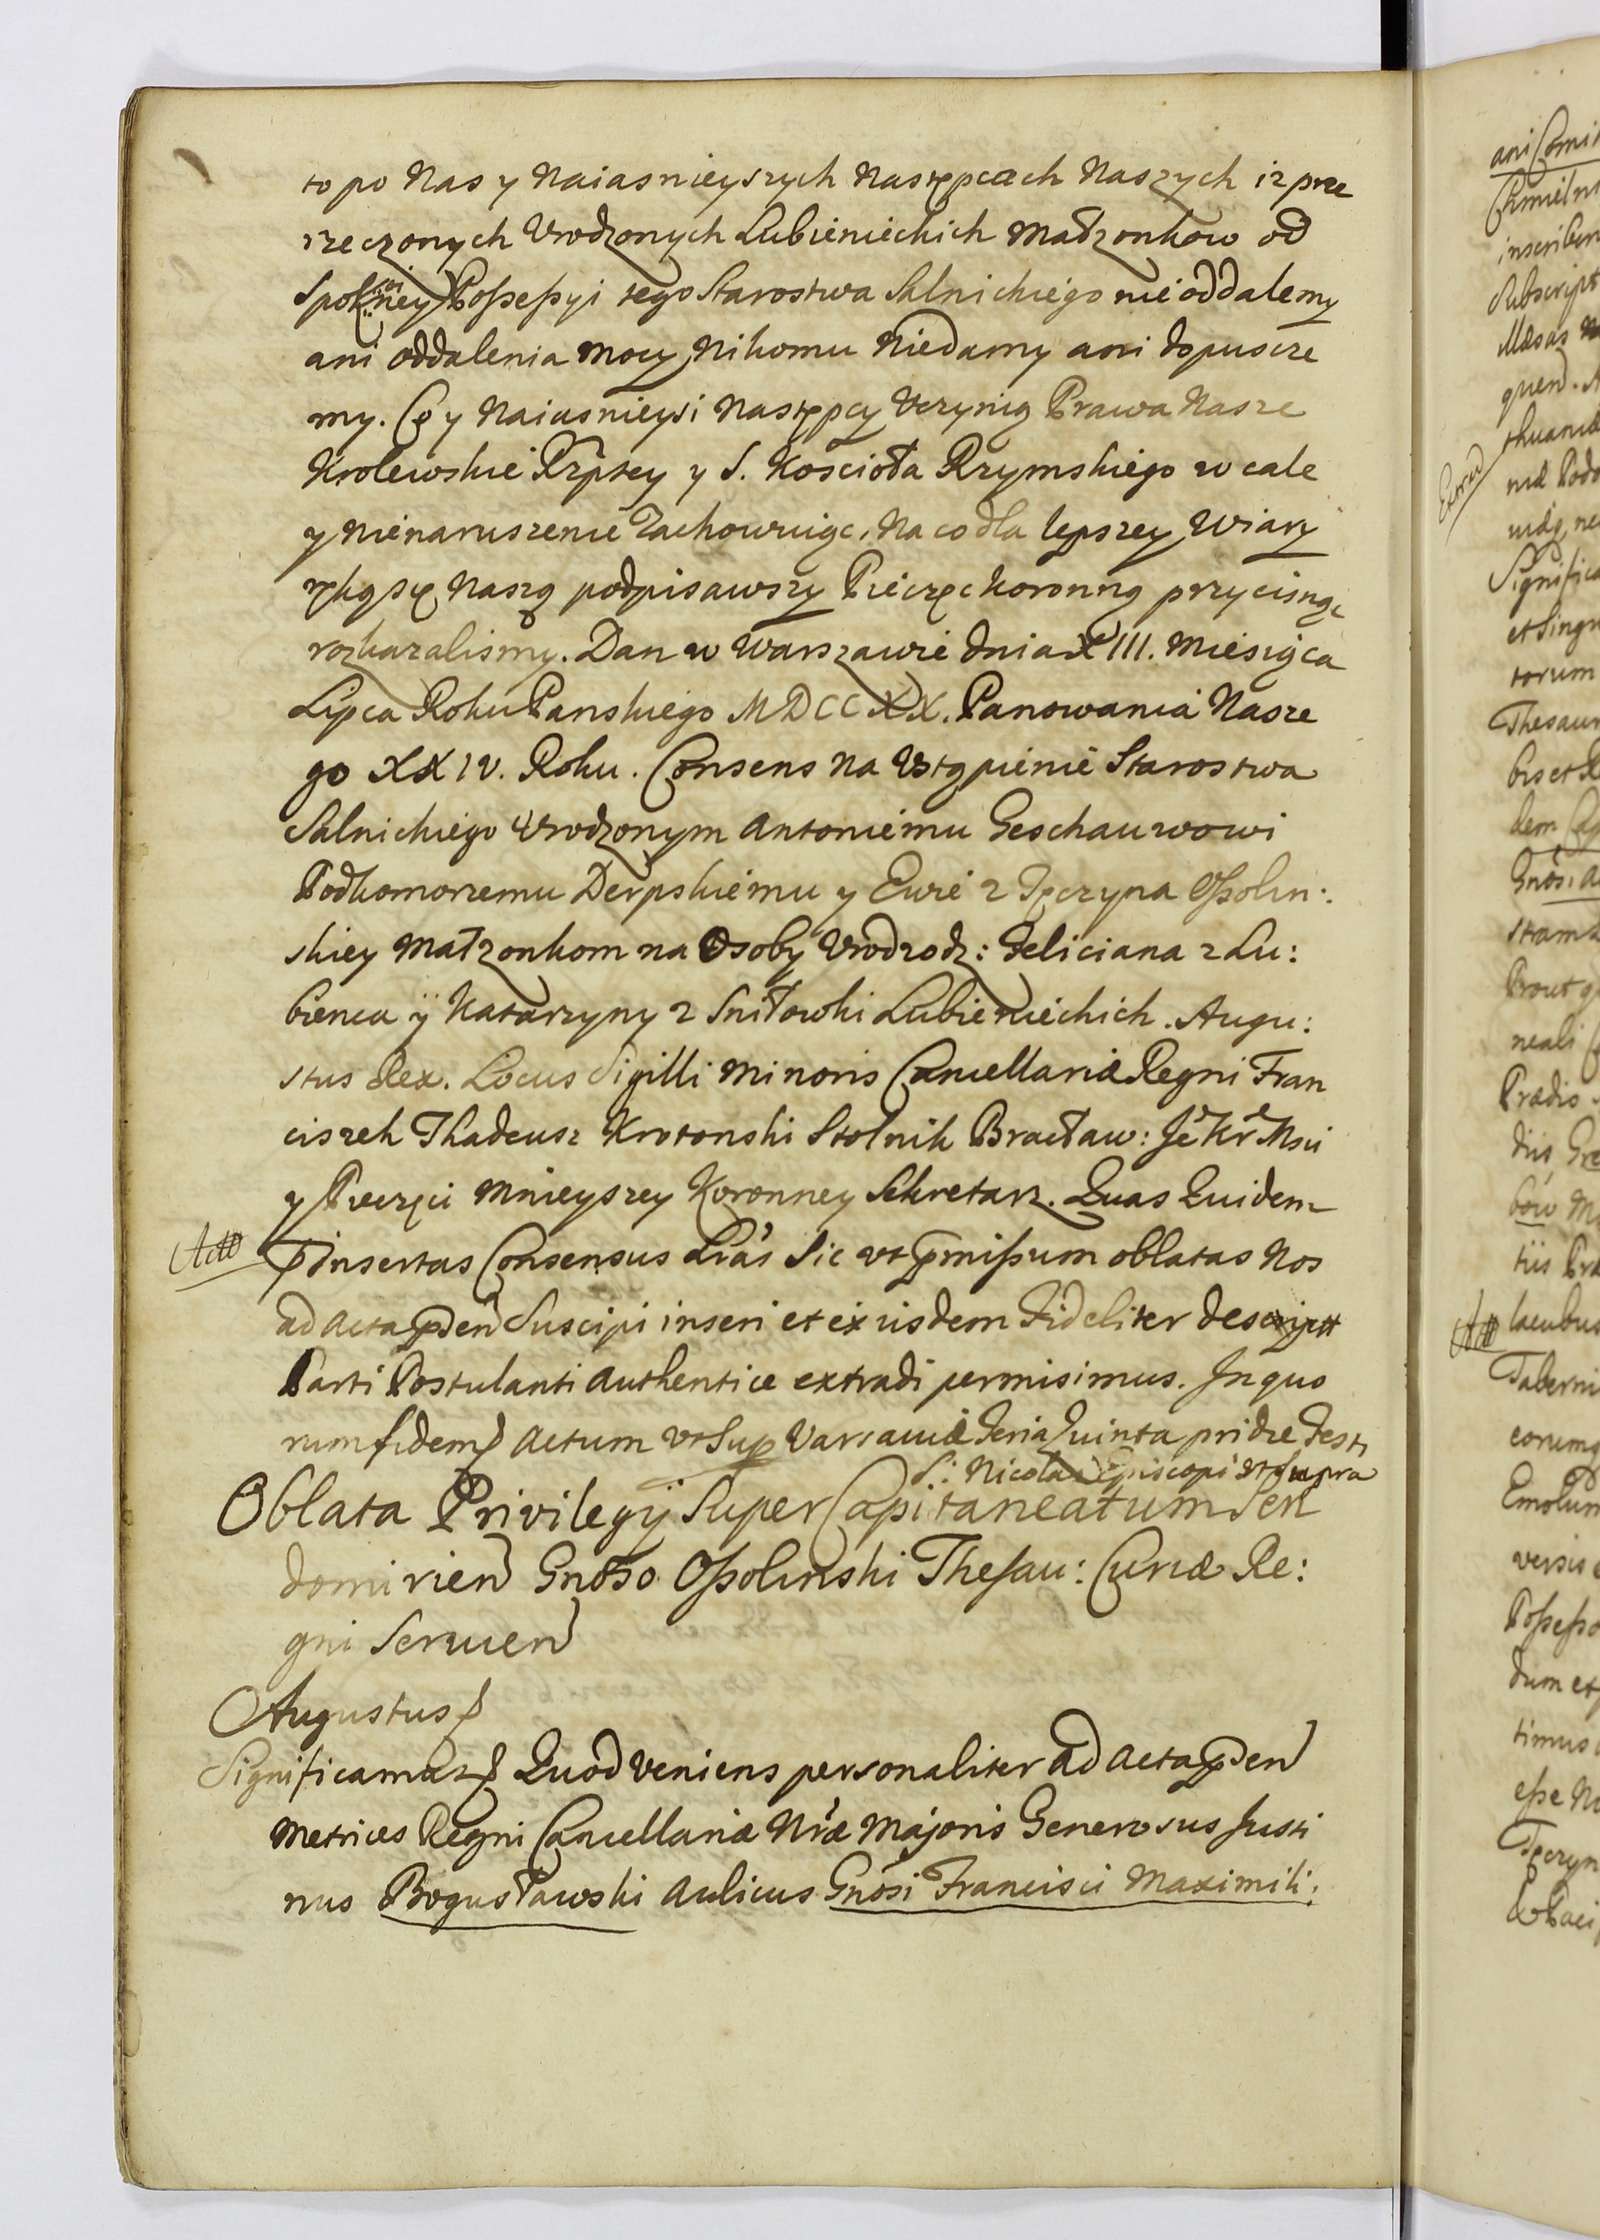 to po Nas y Naiasnieyszych Następcach Naszych iz prze
rzeczonych Urodzonych Lubienieckich Małzonkow od
Possessyi tego Starostwa Salnickiego nie oddalemy
ani oddalenia mocy Nikomu Niedamy ani dopuscze
my. Co y Naiasnieysi Następcy Uczynią Prawa Nasze
Krolewskie Rzptey y S. Kościoła Rzymskiego w cale
y Nienaruszenie Zachowuiąc. Na co dla lepszey Wiary
ręką się Naszą podpisawszy Pieczęc Koronną przycisnąc
rozkazalismy. Dan w Warszawie dnia XIII. Miesiąca
Lipca Roku Panskiego MDCCXX. Panowania Nasze
go XXIV. Roku. Consens na Ustąpienie Starostwa
Salnickiego Urodzonym Antoniemu Geschauwowi
Podkomorzemu Derpskiemu y Ewie z Tęczyna Ossolin:
skiey Małzonkom na Osoby Urodzodz: Feliciana z Lu:
bienca ÿ Katarzyny z Sniłowki Lubienieckich. Augu:
stus Rex. Locus Sigilli Minoris Cancellariæ Regni Fran
ciszek Thadeusz Krotonski Stolnik Bracław: Je Kr Msci
y Pieczęci Mnieyszey Koronney Sekretarz. Quas Quidem
Actō pinsertas Consensus Lrās Sic ut pmissum oblatas Nos
ad Acta pden Suscipi inseri et ex iisdem Fideliter descriptt
Parti Postulanti Authentice extradi permisimus. In quo
rum fidem Actum ut Sup Varsaviæ Feria Quinta pridie Festi
S: Nicolai Episcopi ut supra
Oblata Privilegÿ Super Capitaneatum Sen
domirien Gnoso Ossolinski Thesau: Curiæ Re:
gni Servien
Augustus
Significamus Quod Veniens personaliter ad Acta pden
Metrices Regni Cancellariæ Nræ Majoris Generosus Justi
nus Bogusławski Aulicus Gnosi Francisci Maximili: